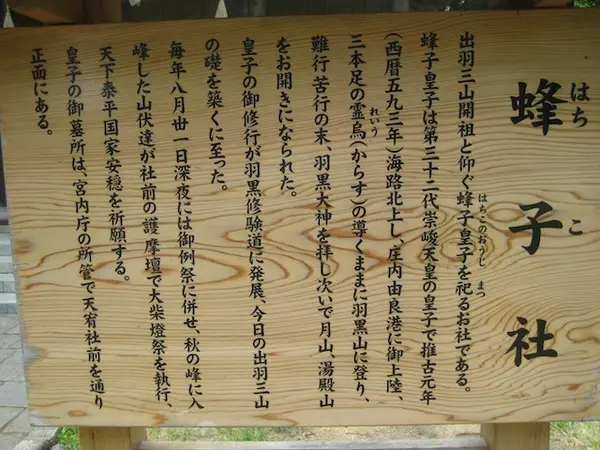 蜂子社
はちこ
出羽三山開祖と仰ぐ蜂子皇子を祀るお社である。
はちこのおうじ まつ
蜂子皇子は第三十二代崇峻天皇の皇子で推古元年
(西暦五九三年)海路北上し、庄内由良港に御上陸、
三本足の霊烏(からす)の導くままに羽黒山に登り、
れいう
難行苦行の末、羽黒大神を拝し次いで月山、湯殿山
をお開きになられた。
皇子の御修行が羽黒修験道に発展、今日の出羽三山
の礎を築くに至った。
毎年八月丗一日深夜には御例祭に併せ、秋の峰に入
峰した山伏達が社前の護摩壇で大柴燈祭を執行、
天下泰平国家安穏を祈願する。
皇子の御墓所は、宮内庁の所管で天宥社前を通り
正面にある。